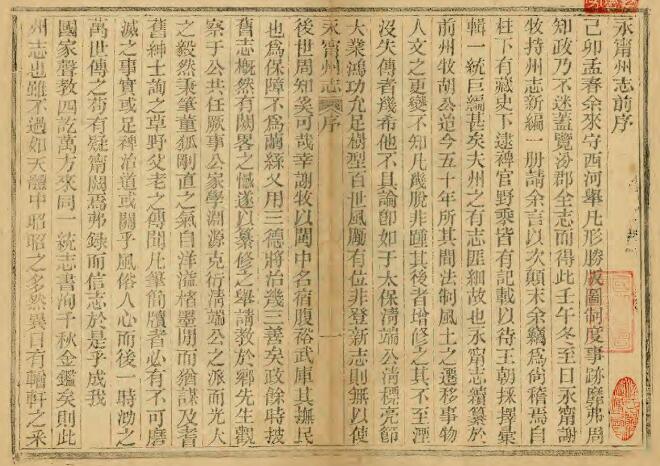 永甯州志前序
己卯孟春余來守西河舉凡形勝版圖制度事跡靡弗周
知政乃不迷蓋覽汾郡全志而得此壬午冬至日永甯謝
牧持州志新編一册請余言以次顛末余竊爲尙稽焉自
柱下有藏史下逮稗官野乘皆有記載以待王朝採擇彙
輯一統巨編甚矣夫州之有志匪細故也永甯志續纂於
前州牧胡公迨今五十年所其間法制風土之遷移事物
人文之更變不知凡幾脫非踵其後者增修之其不至湮
沒失傳者幾希他不具論卽如于太保淸端公淸標亮節
大業鴻功允足樹型百世風厲有位非登新志則無以使
永甯州志 序 一
後世周知矣可哉幸謝牧以閩中名宿腹裕武庫其撫民
也爲保障不爲繭絲乂用三德將治幾三善矣政餘時披
舊志慨然有闕畧之憾遂以纂修之舉請敎於鄉先生觀
察于公共任厥事公家學淵源克衍淸端公之派而光大
之毅然秉筆董狐剛直之氣自洋溢楮墨閒而猶謀及耆
舊紳士詢之草野父老之傳聞凡筆簡牘者必有不可磨
滅之事實或足裨治道或關乎風俗人心而後一時泐之
萬世傳之苟有疑甯闕焉弗録而信志於是乎成我
國家聲敎四訖萬方來同一統志書洵千秋金鑑矣則此
州志也雖不過如天體中昭昭之多然異日有輶軒之采